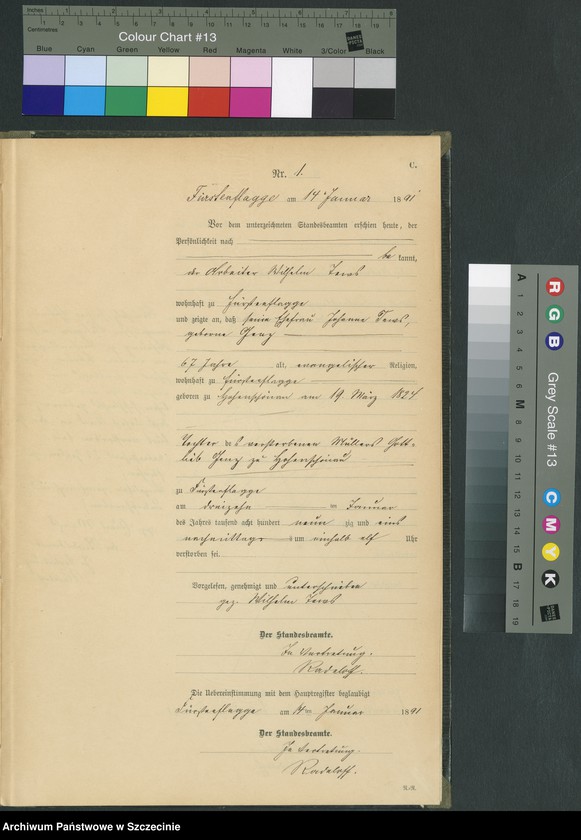 Inches
Centimetres
Colour Chart #13
Blue Cyan Green Yellow Red Magenta White 3/Color Black
C.
Nr. 1.
Fürstenflagge am 14 Januar 1891
Vor dem unterzeichneten Standesbeamten erschien heute, der
Persönlichkeit nach
be kannt,
der Arbeiter Wilhelm Tews
wohnhaft zu Fürstenflagge
und zeigte an, daß seine Ehefrau Johanne Tews,
geborne Genz
67 Jahre alt, evangelischer Religion,
wohnhaft zu Fürstenflagge
geboren zu Hohenschönau am 19. März 1824
Tochter des verstorbenen Müllers Gott-
lieb Genz zu Hohenschönau
zu Fürstenflagge
am dreizehn ten Januar
des Jahres tausend acht hundert neun zig und eins
nachmittags um einhalb elf Uhr
verstorben sei.
Vorgelesen, genehmigt und unterschrieben
gez. Wilhelm Tews
Der Standesbeamte.
In Vertretung.
Radeloff.
Die Uebereinstimmung mit dem Hauptregister beglaubigt
Fürstenflagge am 14ten Januar 1891
Der Standesbeamte.
In Vertretung.
Radeloff.
A 1 2 3 4 5 6 M 8 9 10 11 12 13 14 15 B 17 18 19
R G B
Grey Scale #13
C M Y K
Archiwum Państwowe w Szczecinie